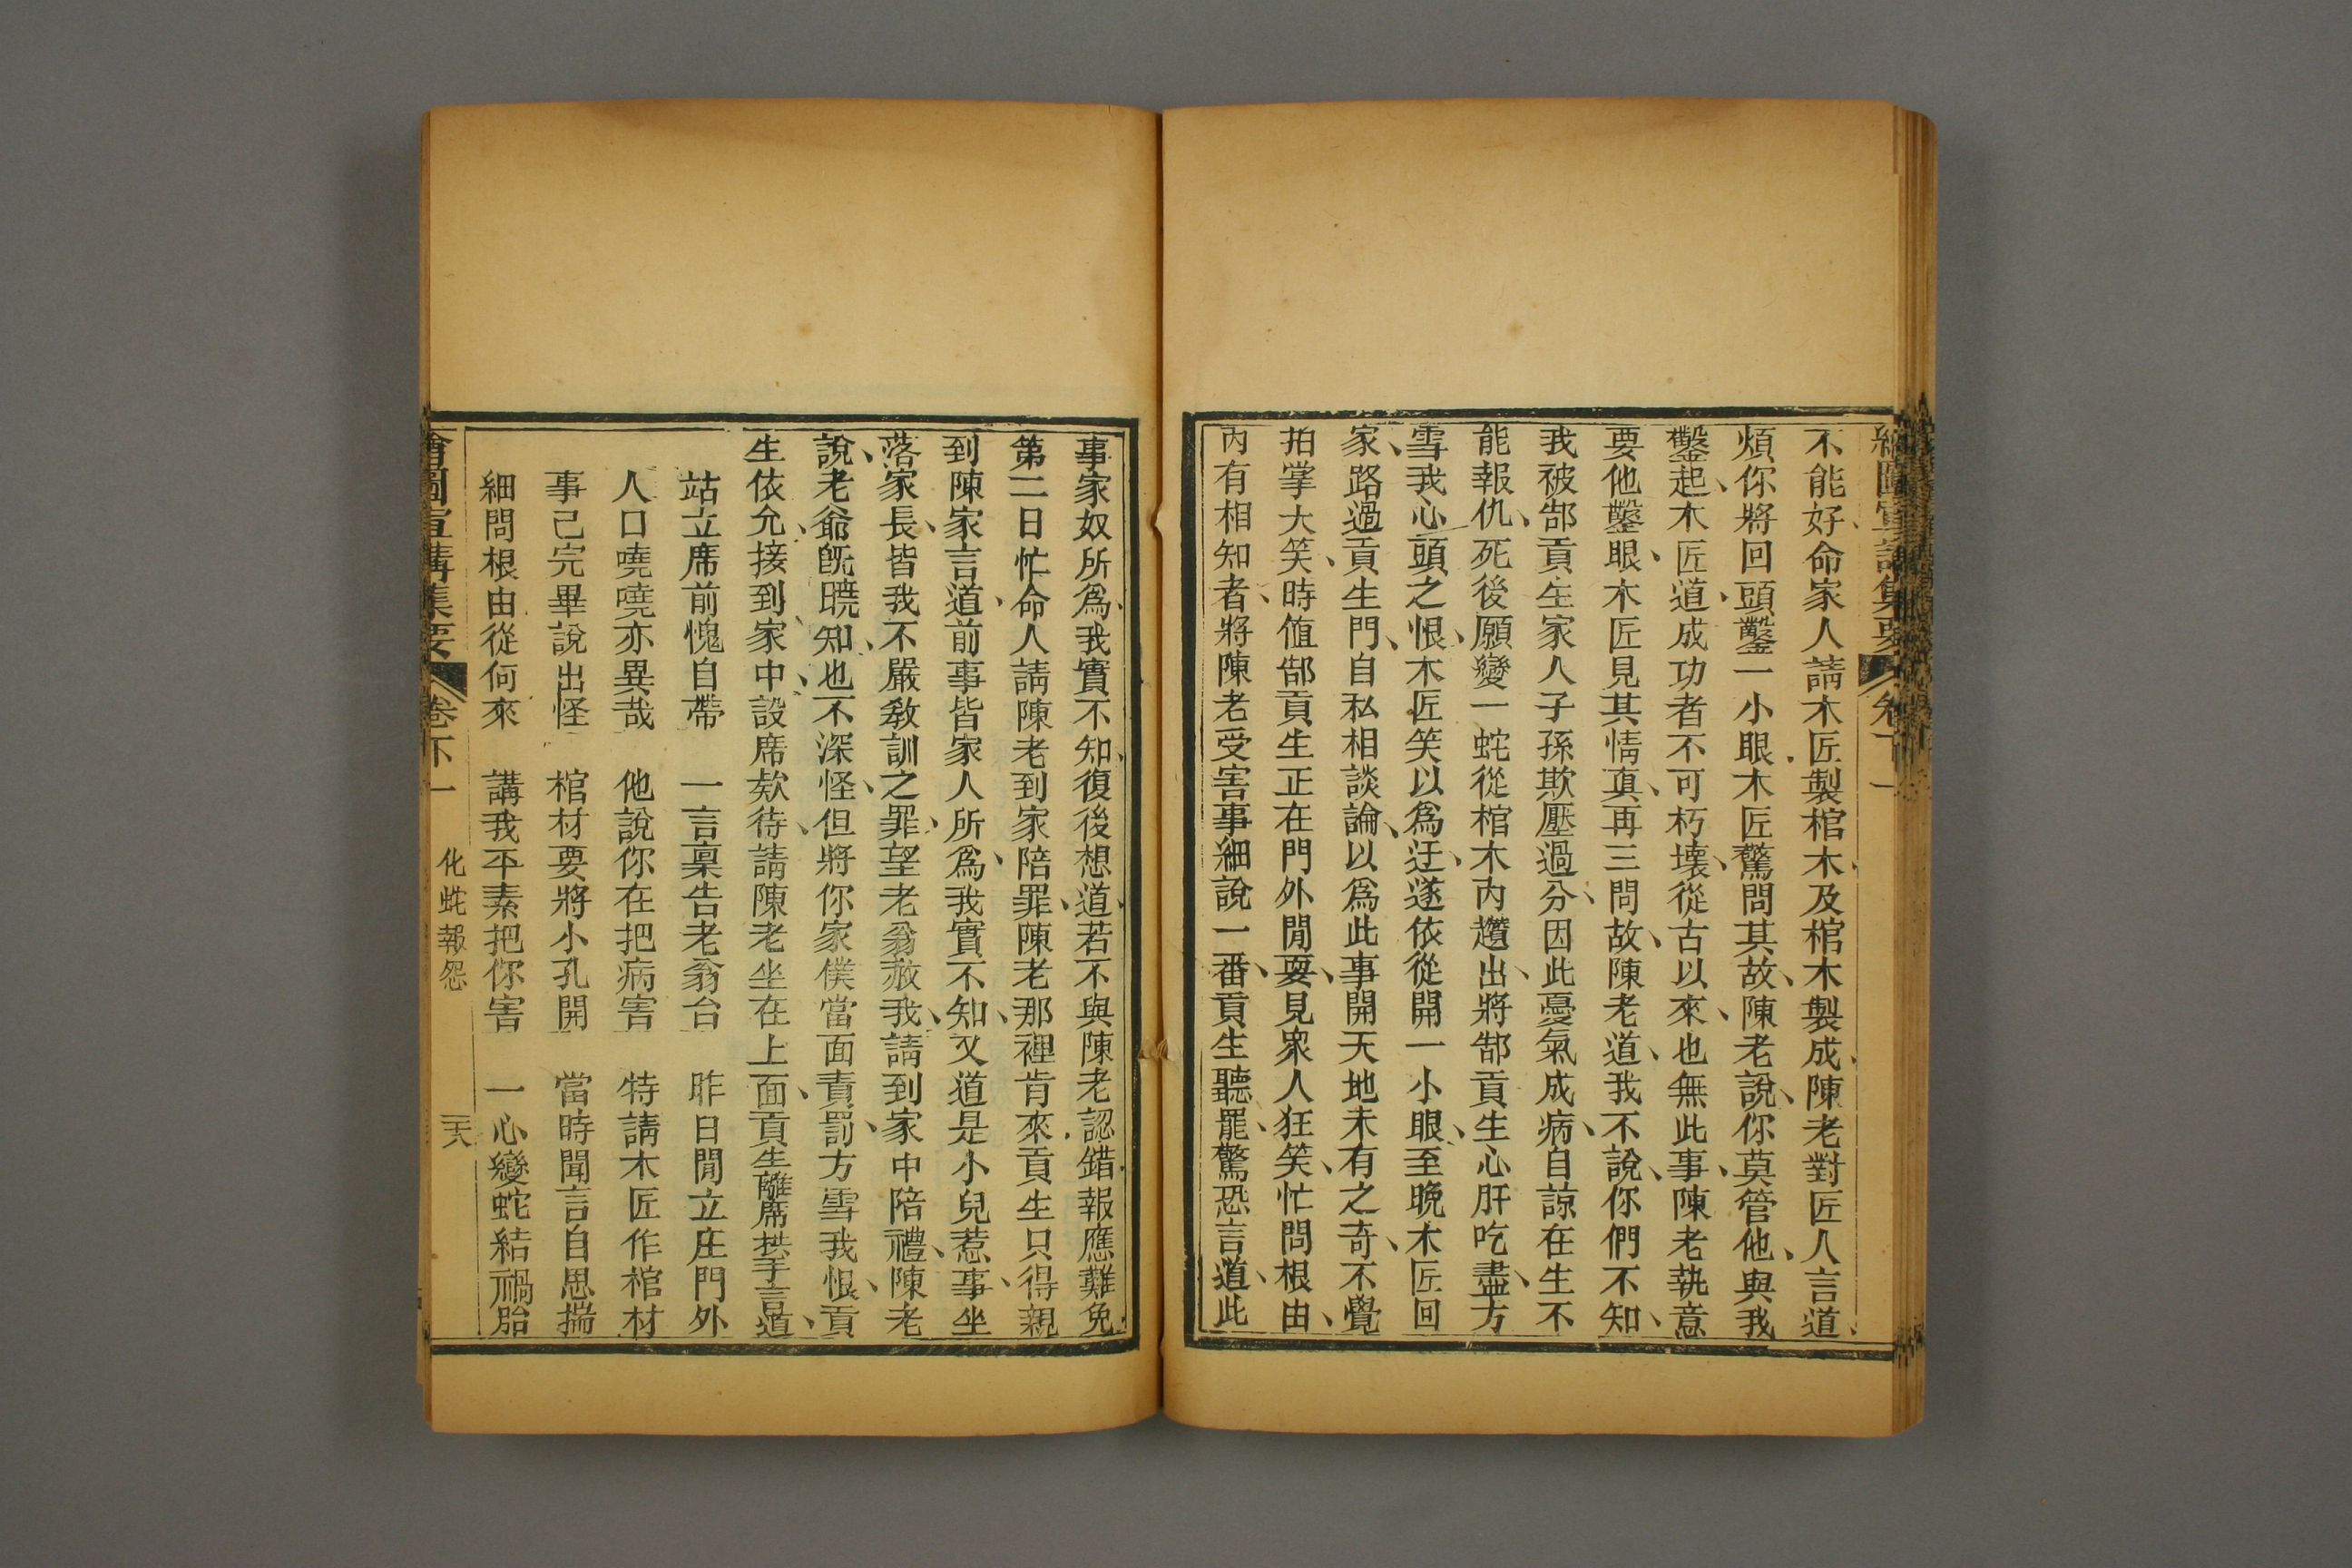 不能好命家人請木匠製棺木及棺木製成陳老對匠人言道
煩你將回頭鑿一小眼木匠驚問其故陳老說你莫管他與我
鑿起木匠道成功者不可朽壞從古以來也無此事陳老執意
要他鑿眼木匠見其情真再三問故陳老道我不說你們不知
我被郜貢生家人子孫欺壓過分因此憂氣成病自諒在生不
能報仇死後願變一蛇從棺木內趲出將郜貢生心肝吃盡方
雪我心頭之恨木匠笑以爲迂遂依從開一小眼至晚木匠回
家路過貢生門自私相談論以爲此事開天地未有之奇不覺
拍掌大笑時值郜貢生正在門外閒耍見衆人狂笑忙問根由
內有相知者將陳老受害事細說一番貢生聽罷驚恐言道此
事家奴所爲我實不知復後想道若不與陳老認錯報應難免
第二日忙命人請陳老到家陪罪陳老那裡肯來貢生只得親
到陳家言道前事皆家人所爲我實不知又道是小兒惹事坐
落家長皆我不嚴敎訓之罪望老翁赦我請到家中陪禮陳老
說老爺旣曉知也不深怪但將你家僕當面責罰方雪我恨貢
生依允接到家中設席欵待請陳老坐在上面貢生離席拱手言道
站立席前愧自帶　一言稟告老翁台　昨日閒立庄門外
人口嘵嘵亦異哉　他說你在把病害　特請木匠作棺材
事已完畢說出怪　棺材要將小孔開　當時聞言自思揣
細問根由從何來　講我平素把你害　一心變蛇結禍胎
繪圖宣講集要　卷下一　化蛇報怨